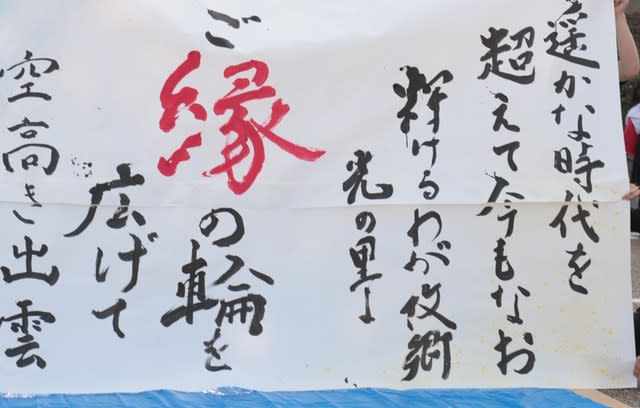 遥かな時代を
超えて今もなお
輝けるわが故郷
光の里よ
ご縁の輪を
広げて
空高き出雲